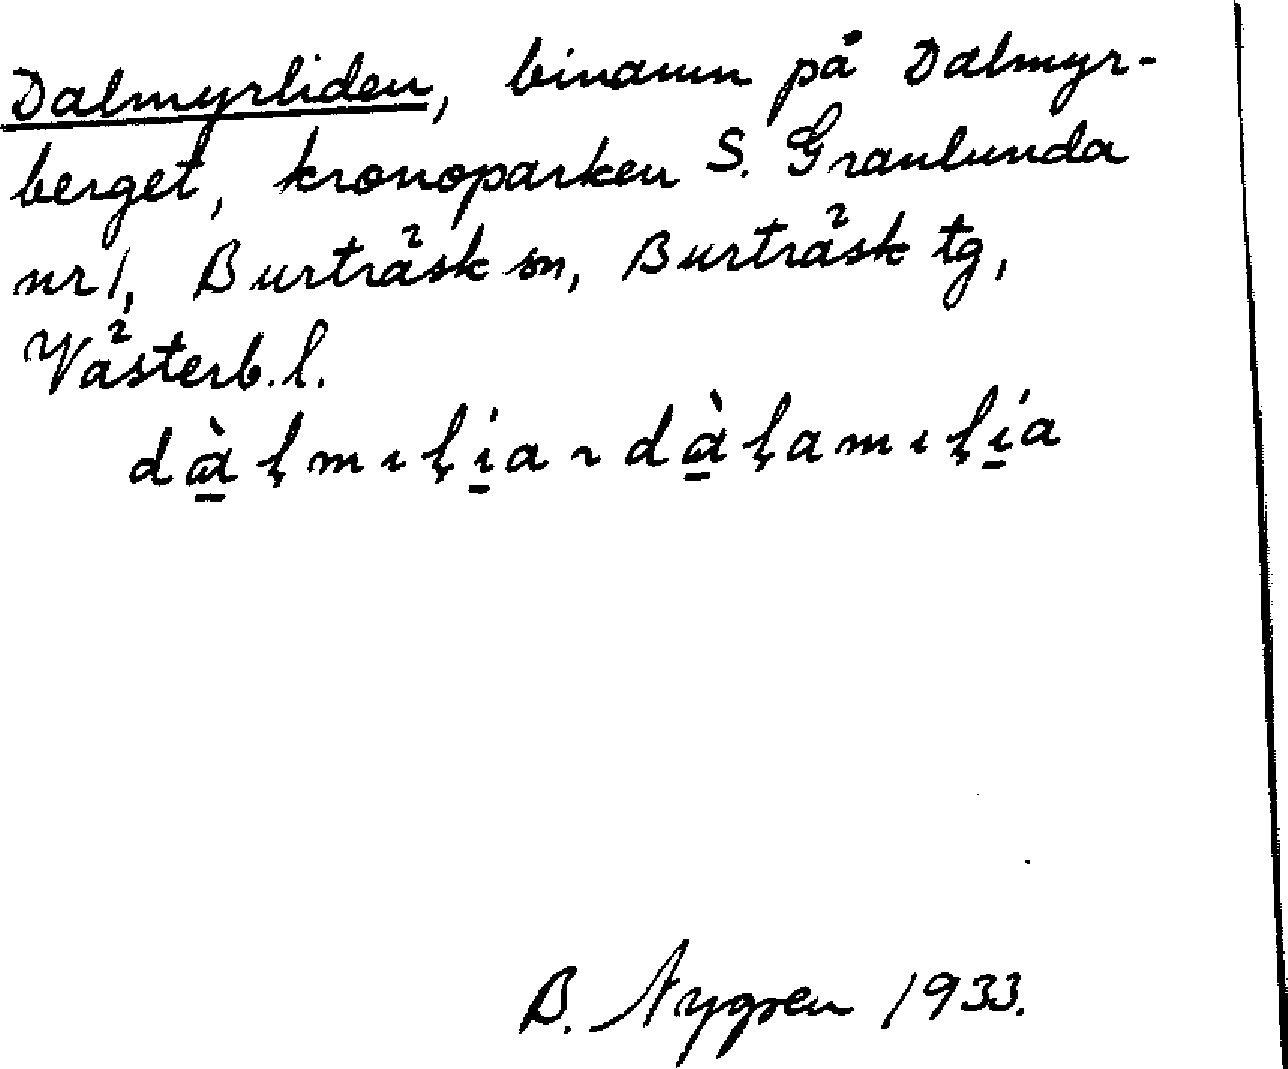 Dalmyrliden, binamn på Dalmyr-
berget, kronoparken S. Granlunda
nr 1, Burträsk sn, Burträsk tg,
Västerb. l.
dà̱ḷmıḷi̱a ~ dà̱ḷamıḷi̱a
B. Nygren 1933.